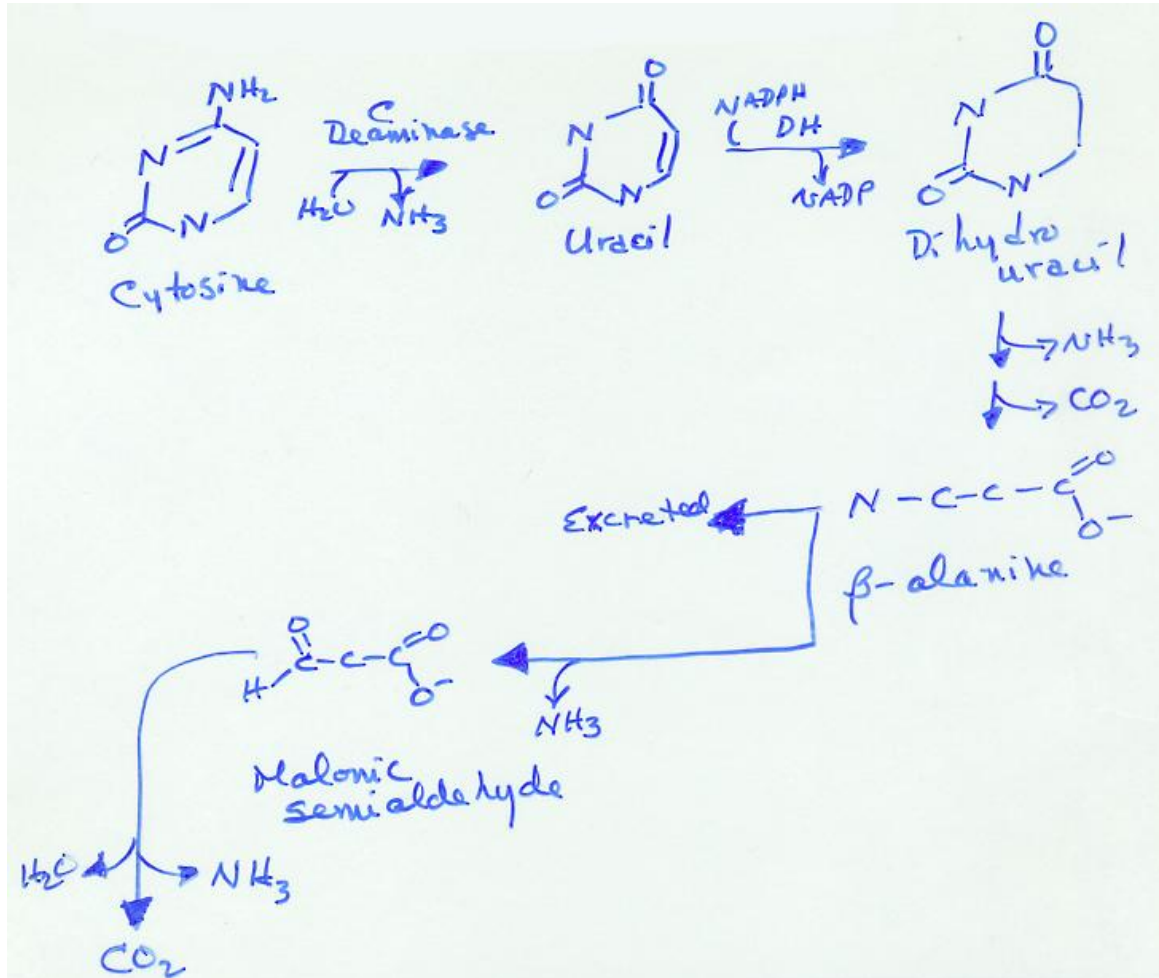 NH2
N
O
N
Cytosine
C
Deaminase
H2O
NH3
O
N
O
N
Uracil
NADPH
DH
NADP
O
N
O
N
Dihydro
uracil
NH3
CO2
Excreted
N - C - C - C
O
O-
β-alanine
NH3
O
H
C - C - C
O
O-
Malonic
semialdehyde
H2O
NH3
CO2